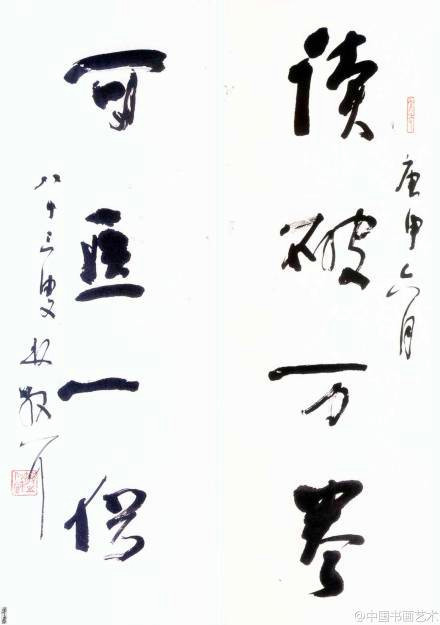 庚申六月
读破万卷
可医一俗
八十三叟林散耳
@中国书画艺术